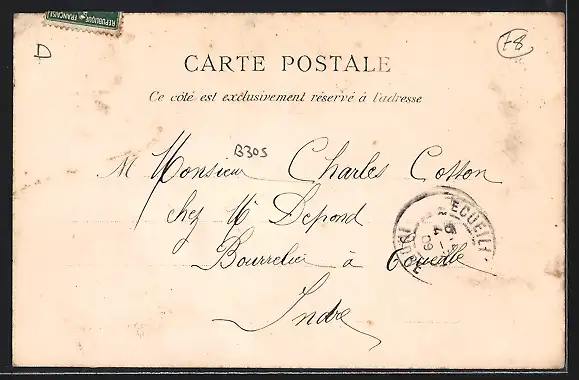 RÉPUBLIQUE FRANÇAISE
D
78
CARTE POSTALE
Ce côté est exclusivement réservé à l'adresse
B305
M Monsieur Charles Cotton
chez Mr Depond
Bourrelier à Ecueillé
Indre
ECUEILL